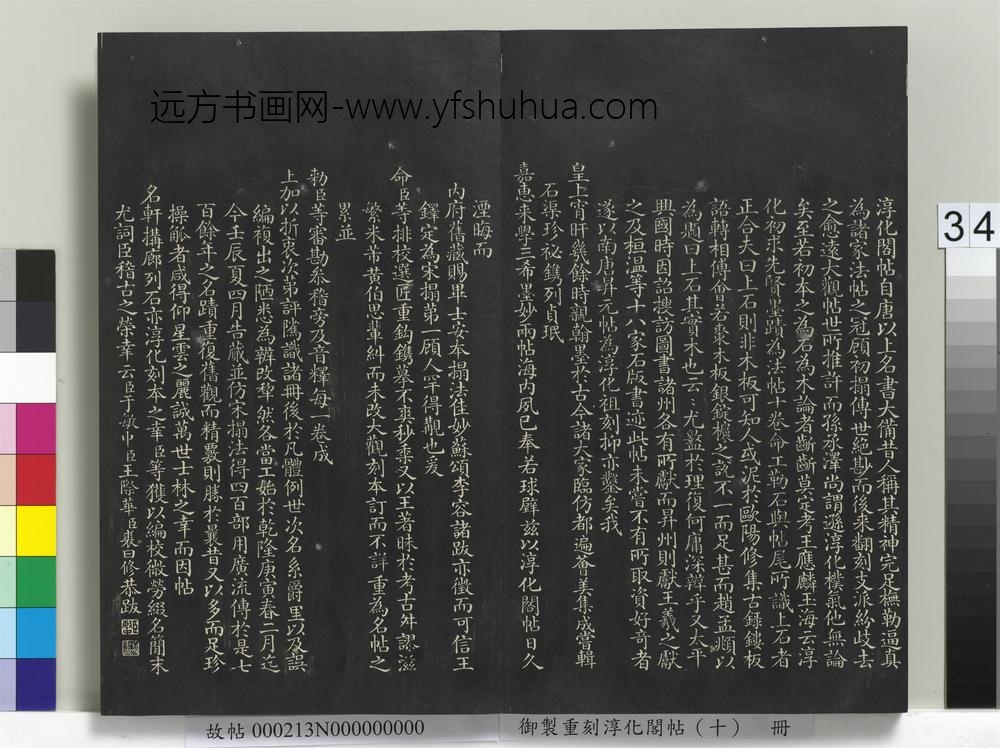 远方书画网-www.yfshuhua.com
淳化閣帖自唐以上名書大備昔人稱其精神完足橅勒逼真
為諸家法帖之冠顧初搨傳世絕尠而後來翻刻支派紛歧去
之愈遠大觀帖世所推許而孫承澤尚謂遜淳化樸氣他無論
矣至若初本之為石為木論者齗齗莫定考王應麟玉海云淳
化初求先賢墨蹟為法帖十卷命工勒石與帖尾所識上石者
正合夫曰上石則非木板可知人或泥於歐陽修集古錄鏤板
語轉相傳會若棗木板銀錠櫼之說不一而足甚而趙孟頫以
為題曰上石其實木也云云尤盭於理復何庸深辨乎又太平
興國時因詔搜訪圖書諸州各有所獻而昇州則獻王羲之獻
之及桓溫等十八家石版書迹此帖未嘗不有所取資好奇者
遂以南唐昇元帖為淳化祖刻抑亦鑿矣我
皇上宵旰幾餘時親翰墨於古今諸大家臨仿都遍薈美集成嘗輯
石渠珍祕鐫列貞珉
嘉惠來學三希墨妙兩帖海内夙已奉若球璧茲以淳化閣帖日久
湮晦而
内府舊藏賜畢士安本搨法佳妙蘇頌李容諸跋亦徵而可信王
鐸定為宋搨第一顧人罕得觀也爰
命臣等排校選匠重鉤鐫摹不爽秒黍又以王著昧於考古舛謬滋
繁米芾黄伯思輩糾而未改大觀刻本訂而不詳重為名帖之
累並
勅臣等審勘參稽旁及音擇每一卷成
上加以折衷次第評隲識諸冊後於凡體例世次名系爵里以及誤
編複出之陋悉為辯改犂然各當焉始於乾隆庚寅春二月迄
今壬辰夏四月告蕆並仿宋搨法得四百部用廣流傳於是七
百餘年之名蹟重復舊觀而精覈則勝於曩昔又以多而足珍
操觚者咸得仰星雲之麗誠萬世士林之幸而因帖
名軒搆廊列石亦淳化刻本之幸臣等獲以編校微勞綴名簡末
尤詞臣稽古之榮幸云臣于敏中臣王際華臣裘曰修恭跋
34
故帖 000213N000000000
御製重刻淳化閣帖（十） 冊